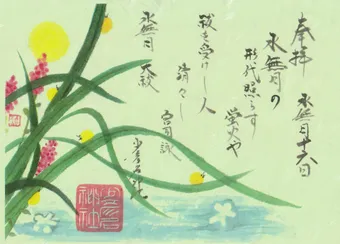 奉拝 水無月十六日
水無月の
形代照らす
蛍火や
祓を受けし人
清々し
宮司詠
水無月 大祓